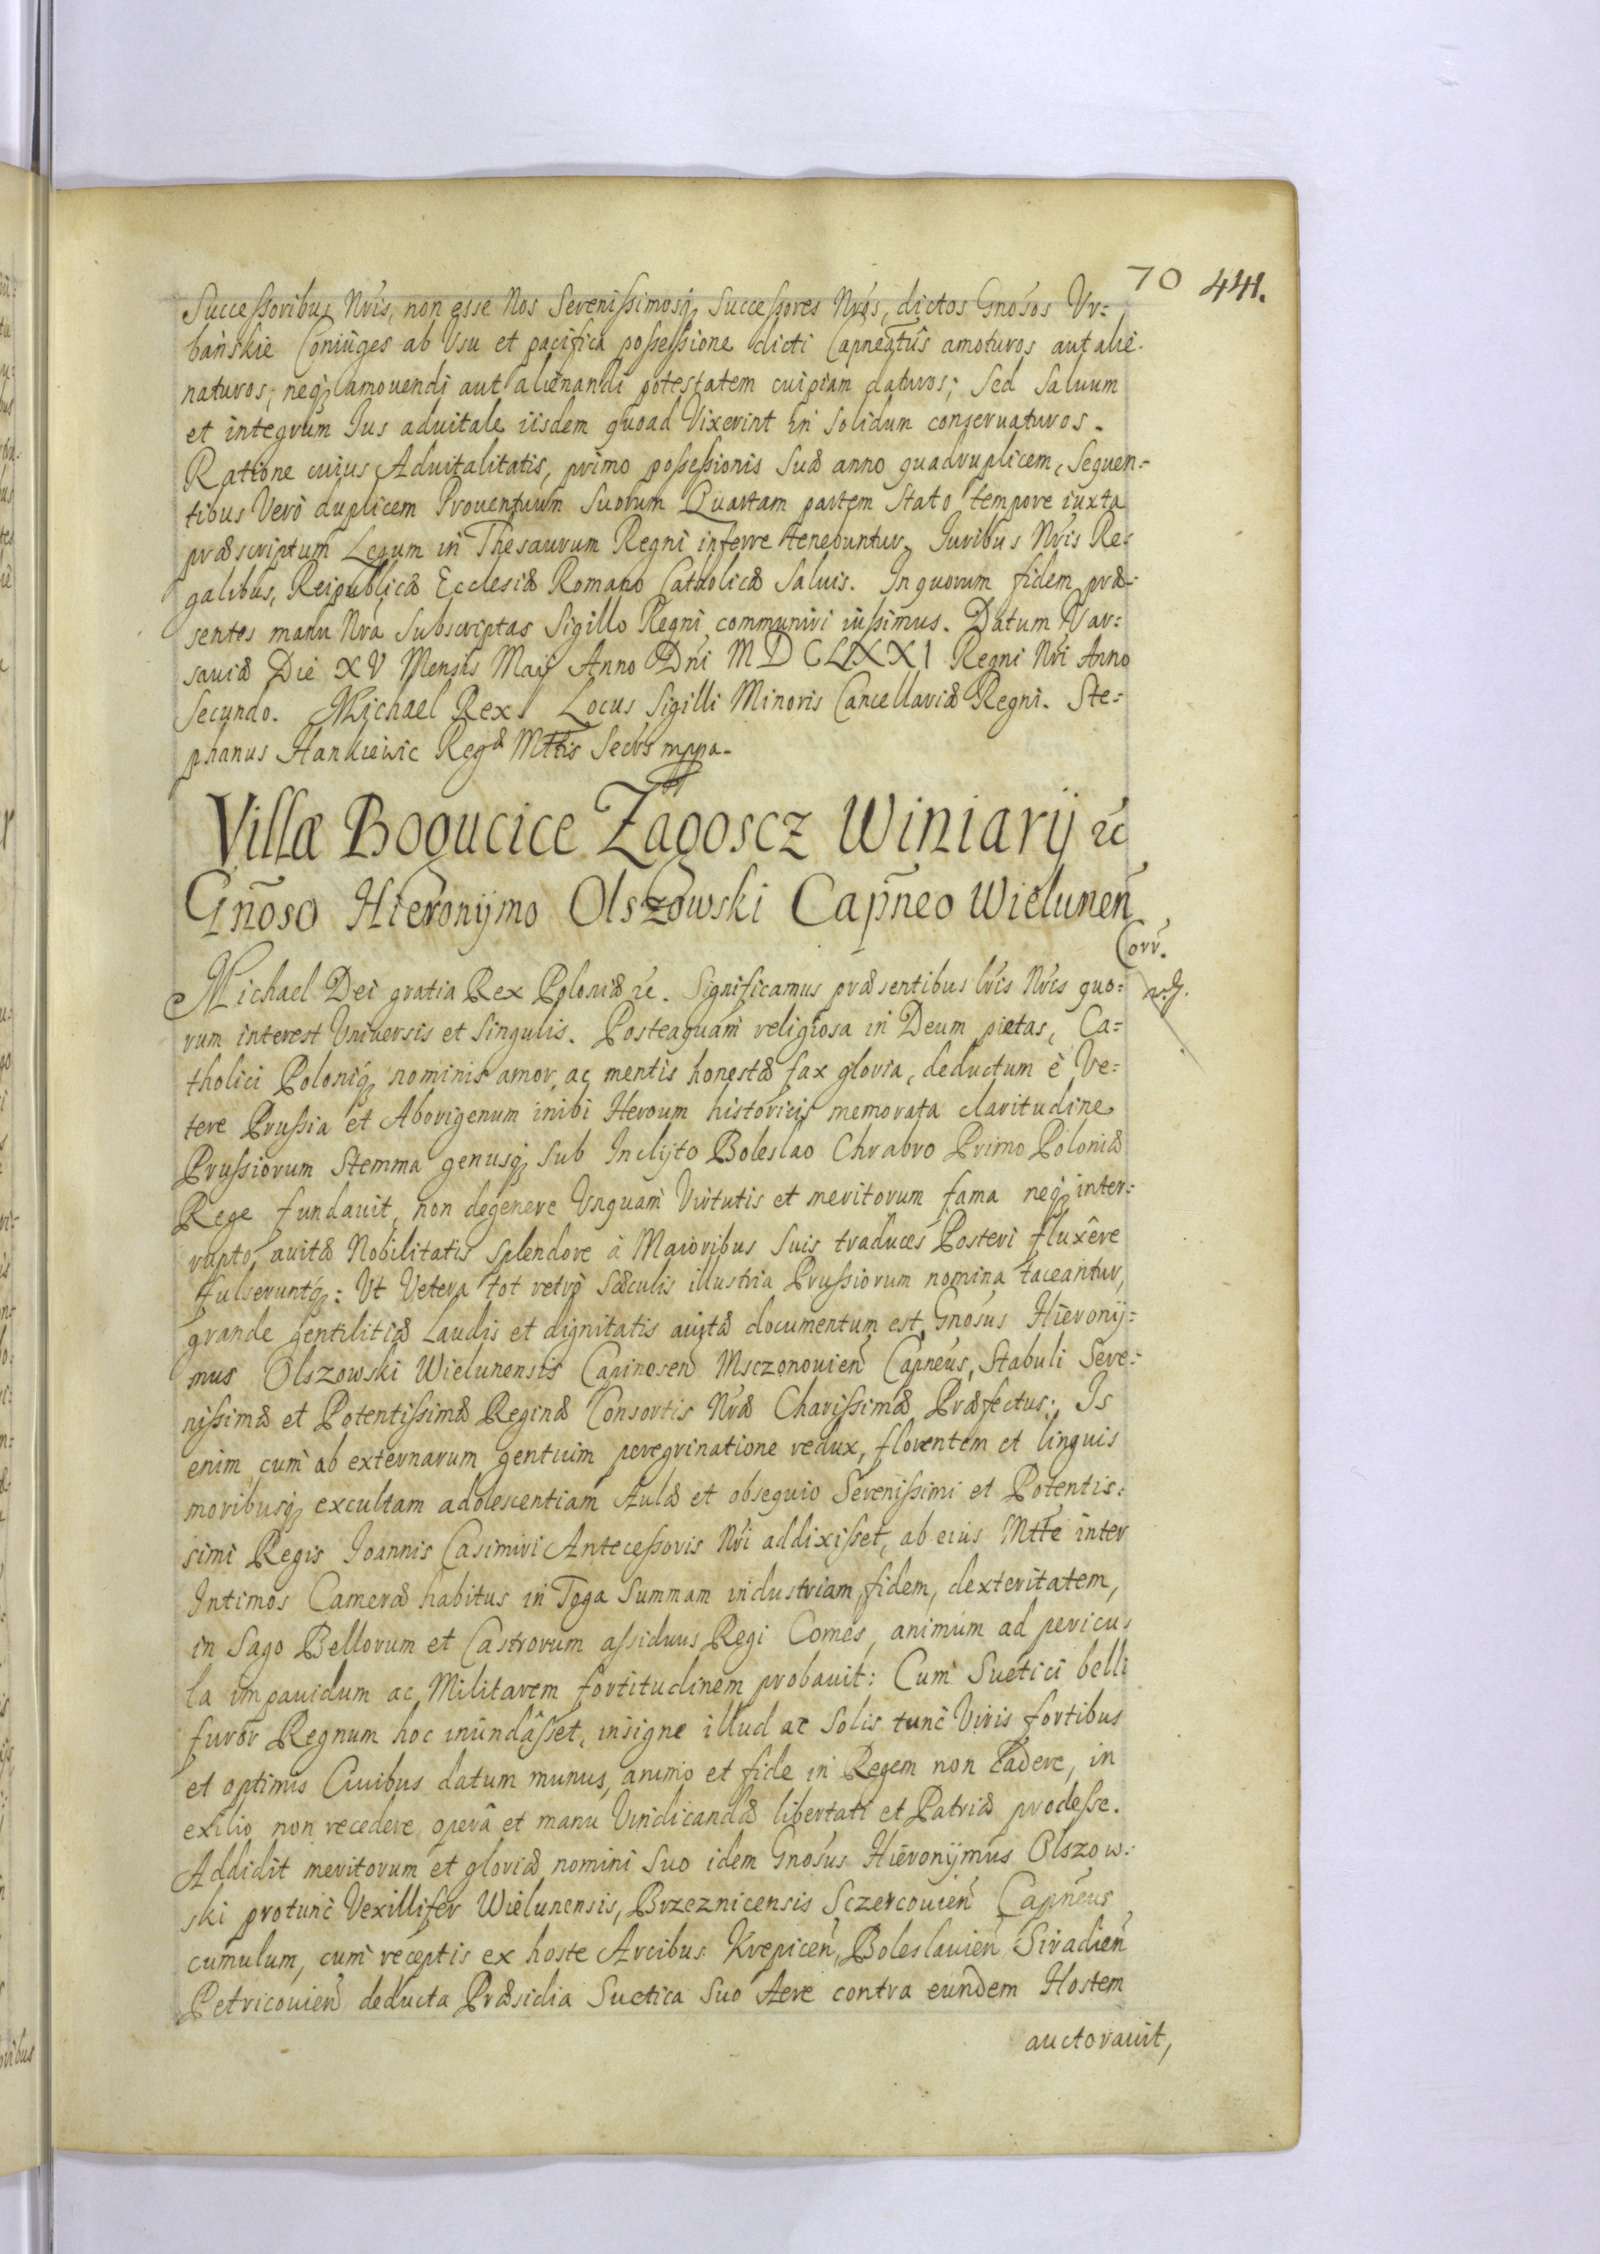 70 441.
Successoribus Nris, non esse Nos Serenissimosq́ʒ Successores Nros, dictos Gnosos Vr=
bańskie Coniuges ab Vsu et pacifica possessione dicti Capneatûs amoturos aut alie=
naturos, neq́ʒ amouendi aut alienandi potestatem cuipiam daturos; Sed Saluum
et integrum Ius aduitale iisdem quoad Vixerint in Solidum conseruaturos.
Ratione cuius Aduitalitatis, primo possessionis Suæ anno quadruplicem, Sequen=
tibus Verò duplicem Prouentuum Suorum Quartam partem Stato tempore iuxta
præscriptum Legum in Thesaurum Regni inferre tenebuntur. Iuribus Nris Re=
galibus, Reipublicæ Ecclesiæ Romano Catholicæ Saluis. In quorum fidem præ=
sentes manu Nra Subscriptas Sigillo Regni communiri iussimus. Datum Var=
sauiæ Die XV Mensis Maij Anno Dni MDCLXXI Regni Nri Anno
Secundo. Michael Rex. Locus Sigilli Minoris Cancellariæ Regni. Ste=
phanus Hankiewic Regæ Mttis Secrs mppa.
Villæ Bogucice Zagoscz Winiarij &c
Gnoso Hieronijmo Olszowski Capneo Wielunen
Corr.
Michael Dei gratia Rex Poloniæ &c. Significamus præsentibus lris Nris quo=
rum interest Vniuersis et Singulis. Posteaquam religiosa in Deum pietas, Ca=
tholici Poloniq́ʒ nominis amor, ac mentis honestæ fax gloria, deductum è Ve=
tere Prussia et Aborigenum inibi Heroum historicis memorata claritudine
Prussiorum Stemma genusq́ʒ Sub Inclyto Boleslao Chrabro Primo Poloniæ
Rege fundauit, non degenere Vnquam Virtutis et meritorum fama neq́ʒ inter=
rupto, auitæ Nobilitatis Splendore à Maioribus Suis traduces Posteri fluxêre
fulseruntq́ʒ: Vt Vetera tot retrò Sæculis illustria Prussiorum nomina taceantur,
grande gentilitiæ Laudis et dignitatis auctæ documentum est, Gnosus Hierony=
mus Olszowski Wielunensis Capinosen Msczonouien Capneus, Stabuli Sere=
nissimæ et Potentissimæ Reginæ Consortis Nræ Charissimæ Præfectus; Is
enim cum ab externarum gentium peregrinatione redux, florentem et linguis
moribusq́ʒ excultam adolescentiam Aulæ et obsequio Serenissimi et Potentis=
simi Regis Ioannis Casimiri Antecessoris Nri addixisset, ab eius Mtte inter
Intimos Cameræ habitus in Toga Summam industriam, fidem, dexteritatem,
in Sago Bellorum et Castrorum assiduus Regi Comes, animum ad pericu=
la impauidum ac Militarem fortitudinem probauit: Cum Suetici belli
furor Regnum hoc inundâsset, insigne illud ac Solis tunc Viris fortibus
et optimis Ciuibus datum munus, animo et fide in Regem non cadere, in
exilio non recedere, operâ et manu Vindicandæ libertati et Patriæ prodesse.
Addidit meritorum et gloriæ nomini Suo idem Gnosus Hieronymus Olszow=
ski protunc Vexillifer Wielunensis, Brzeznicensis Sczercouien Capneus
cumulum, cum receptis ex hoste Arcibus Krepicen, Boleslauien Siradien
Petricouien deducta Præsidia Suetica Suo Aere contra eundem Hostem
auctorauit,